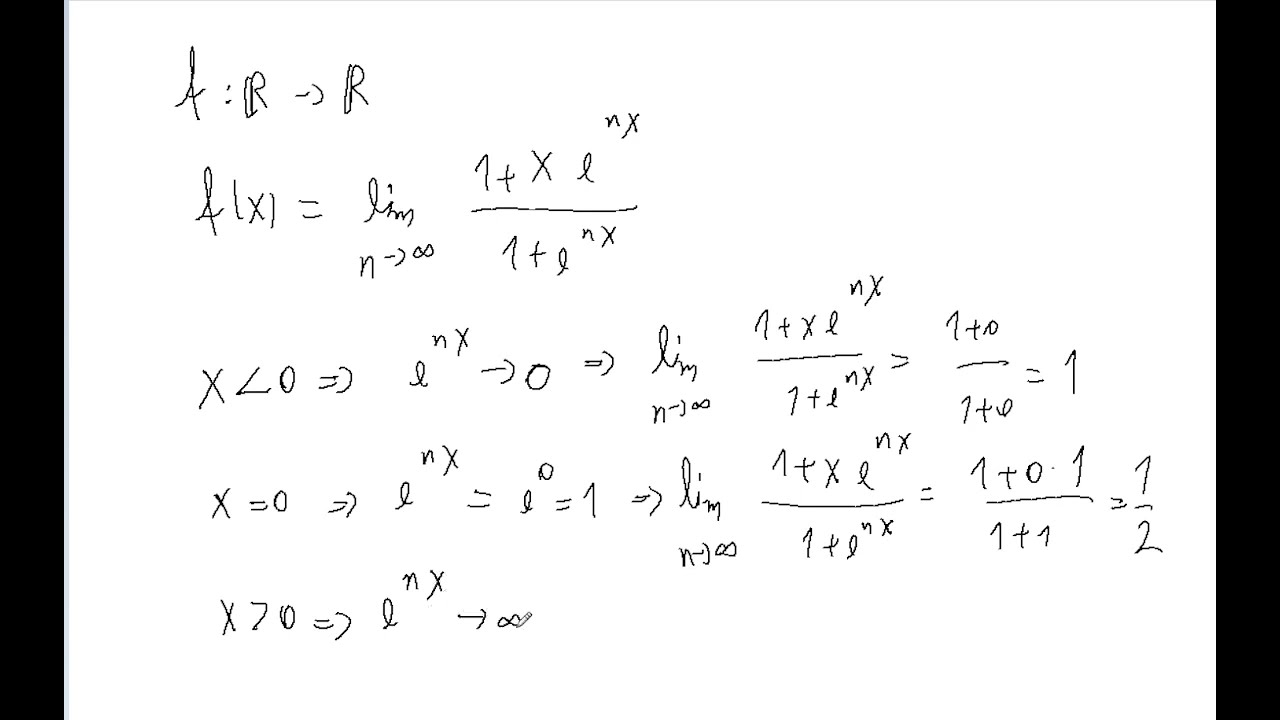 f : ℝ → ℝ
f(x) = lim n→∞ (1 + x e^{nx}) / (1 + e^{nx})
x < 0 ⇒ e^{nx} → 0 ⇒ lim n→∞ (1 + x e^{nx}) / (1 + e^{nx}) = (1+0) / (1+0) = 1
x = 0 ⇒ e^{nx} = e^0 = 1 ⇒ lim n→∞ (1 + x e^{nx}) / (1 + e^{nx}) = (1 + 0 · 1) / (1 + 1) = 1/2
x > 0 ⇒ e^{nx} → ∞